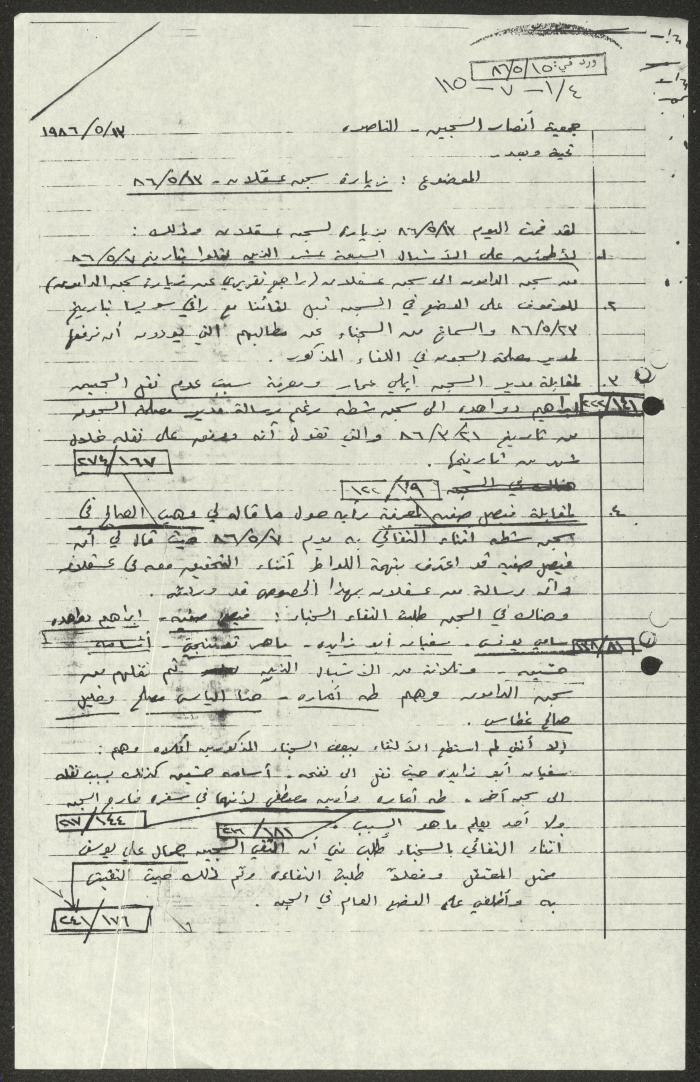 ورد في: ٨٦/٥/١٥
١/٤ - ٧ - ١١٥
جمعية أنصار السجين - الناصره
١٩٨٦/٥/١٣
تحية وبعد -
الموضوع : زيارة سجن عسقلان - ٨٦/٥/١٣
لقد قمت اليوم ٨٦/٥/١٣ بزيارة لسجن عسقلان وذلك :
١. لأطمئن على الأشبال السبعة عشر الذين نقلوا بتاريخ ٨٦/٥/٧
من سجن الدامون الى سجن عسقلان (راجع تقريري عن زيارة سجن الدامون)
٢. للوقوف على الوضع في السجن قبل لقائنا مع رافي سويسا بتاريخ
٨٦/٥/٢٣ والسماع من السجناء عن مطالبهم التي يودون أن نرفعها
لمدير مصلحة السجون في اللقاء المذكور .
٣. لمقابلة مدير السجن ايلي عمار ومعرفة سبب عدم نقل السجين
ابراهيم دواهده الى سجن شطه رغم رسالة مدير مصلحة السجون
٢٢٢/١٤١
من تاريخ ٨٦/٣/٢١ والتي تقول أنه ووفق على نقله خلال
شهر من تاريخها .
٢٧٤/١٦٧
هنالك في السجن
١٢٢/٧٩
٤. لمقابلة فيصل صفيه لمعرفة رأيه حول ما قاله لي وهيب الصالح في
سجن شطه اثناء التقائي به يوم ٨٦/٥/٧ حيث قال لي أن
فيصل صفيه قد اعترف بتهمة اللواط أثناء التحقيق معه في عسقلان
وأن رسالة من عسقلان بهذا الخصوص قد وردته .
وهناك في السجن طلبت التقاء السجناء : فيصل صفيه - ابراهيم دواهده
سامي يونس - سفيان أبو زايده - ماهر - أسامه
١٢٨/٨١
حسين - وثلاثة من الأشبال الذين تم نقلهم من
سجن الدامون وهم طه أماره - حنا الياس مصلح وخليل
صالح غطاس .
إلا أنني لم استطع الالتقاء ببعض السجناء المذكورين أعلاه وهم :
سفيان أبو زايده حيث نقل الى نفحه - أسامه حسين كذلك بسبب نقله
الى سجن آخر - طه أماره وأمين مصطفى لأنهما في سفره خارج السجن
٢١٧/١٤٤
ولا أحد يعلم ما هو السبب .
٢٦٦/١٨١
اثناء التقائي بالسجناء طلب مني أن التقي السجين جمال علي يوسف
ممثل المعتقل وفعلاً طلبت التقاءه وتم ذلك حيث التقيت
به وأطلعني على الوضع العام في السجن .
٢٤١/١٧٦